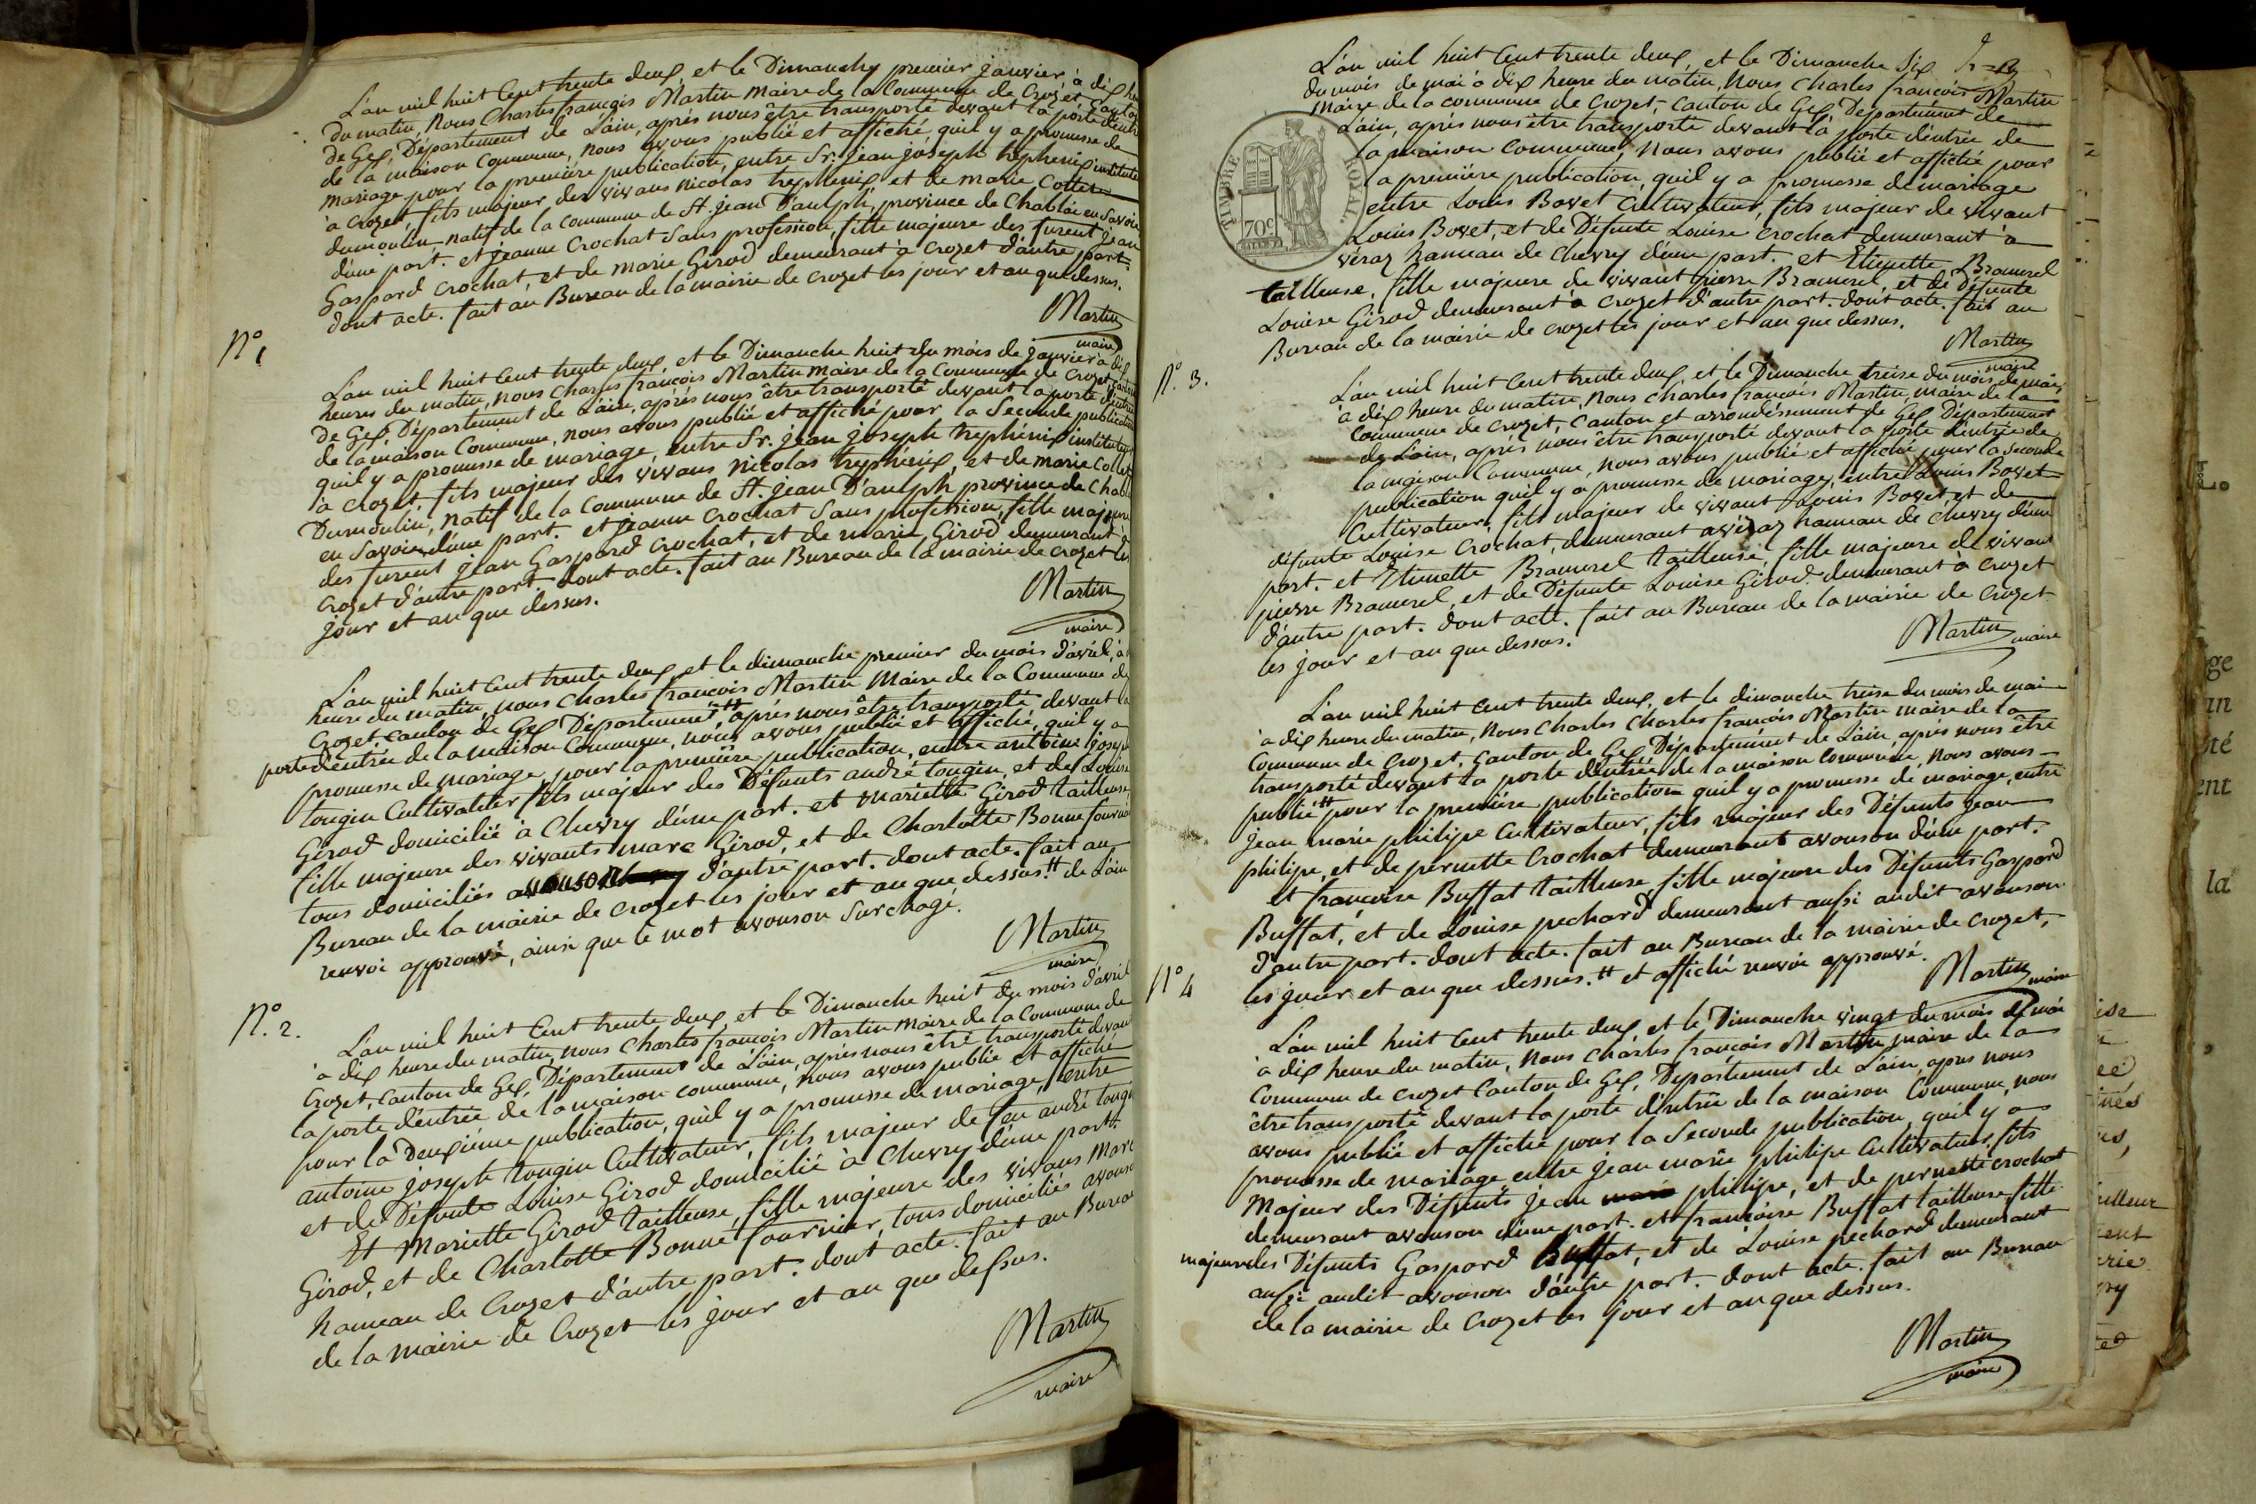 L'an mil huit Cent trente deux, et le Dimanche premier janvier à dix
du matin, Nous Charles françois Martin Maire de la Commune de Crozet Canton
de Gex, Département de L'ain, après nous être transporté devant la porte d'entrée
de la maison Commune, nous avons publié et affiché, qu'il y a promesse de
mariage pour la première publication, entre Sr. jean joseph trephenix instituteur
à Crozet, fils majeur des vivans Nicolas trephenix, et de Marie Cottet
dumoulin natif de la Commune de St. jean D'aulph, province de Chablai en Savoie
d'une part. et jeanne Crochat Sans profession, fille majeure des furent jean
Gaspard Crochat, et de marie Girod demeurant à Crozet d'autre part.
dont acte. fait au Bureau de la mairie de Crozet les jour et an que dessus.
Martin
maire
N° 1
L'an mil huit Cent trente deux, et le Dimanche huit du mois de janvier à dix
heures du matin, nous Charles françois Martin maire de la Commune de Crozet, Canton
de Gex, Département de L'ain, après nous être transporté devant la porte d'entrée
de la maison Commune, nous avons publié et affiché pour la Seconde publication
qu'il y a promesse de mariage, entre Sr. jean joseph trephénix instituteur
à Crozet, fils majeur des vivans Nicolas trephénix, et de marie Cottet
Dumoulin, natif de la Commune de St. jean D'aulph province de Chablai
en Savoie d'une part. et jeanne Crochat Sans profession, fille majeure
des furent jean Gaspard Crochat, et de marie Girod demeurant à
Crozet d'autre part. dont acte. fait au Bureau de la mairie de Crozet les
jour et an que dessus.
Martin
maire
L'an mil huit Cent trente deux, et le dimanche premier du mois d'avril, à
heure du matin, nous Charles françois Martin Maire de la Commune de
Crozet, canton de Gex Département H, après nous être transporté, devant la
porte d'entrée de la maison Commune, nous avons publié et affiché, qu'il y a
promesse de mariage pour la première publication, entre antoine joseph
tougin Cultivateur fils majeur des Défunts andré tougin, et de Louise
Girod domicilié à Chevry d'une part. et Mariette Girod tailleuse
fille majeure des vivants marc Girod, et de Charlotte Bonne fournier
tous domiciliés avouson d'autre part. dont acte. fait au
Bureau de la mairie de Crozet les jour et an que dessus. H de L'ain
renvoi approuvé, ainsi que le mot avouson Surchagé.
Martin
maire
N°. 2.
L'an mil huit Cent trente deux, et le Dimanche huit du mois d'avril
à dix heure du matin, nous Charles françois Martin Maire de la Commune de
Crozet, Canton de Gex, Département de L'ain, après nous être transporté devant
la porte d'entrée de la maison commune, nous avons publié et affiché
pour la Deuxième publication, qu'il y a promesse de mariage, entre
antoine joseph tougin Cultivateur, fils majeur de feu andré tougin
et de Défunte Louise Girod domicilié à Chevry d'une part.
Et Mariette Girod tailleuse, fille majeure des vivans Marc
Girod, et de Charlotte Bonne fournier, tous domiciliés avouson
hameau de Crozet d'autre part. dont acte. fait au Bureau
de la Mairie de Crozet les jour et an que dessus.
Martin
maire
L'an mil huit Cent trente deux, et le Dimanche Six
du mois de mai à dix heure du matin, Nous Charles françois Martin
Maire de la commune de Crozet, Canton de Gex, Département de
L'ain, après nous être transporté devant la porte d'entrée de
la maison Commune, Nous avons publié et affiché pour
la première publication, qu'il y a promesse de mariage
entre Louis Bovet Cultivateur, fils majeur de vivant
Louis Bovet, et de Défunte Louise Crochat demeurant à
véraz hameau de Chevry d'une part. et Etiennette Bramerel
tailleuse, fille majeure de vivant pierre Bramerel, et de Défunte
Louise Girod demeurant à Crozet d'autre part. dont acte. fait au
Bureau de la mairie de Crozet les jour et an que dessus.
TIMBRE ROYAL.
70c
Martin
maire
N°. 3.
L'an mil huit Cent trente deux, et le Dimanche treise du mois de mai
à dix heure du matin, Nous Charles françois Martin, maire de la
Commune de Crozet, Canton et arrondissement de Gex, Département
de L'ain, après nous être transporté devant la porte d'entrée de
la maison Commune, nous avons publié et affiché pour la Seconde
publication qu'il y a promesse de mariage, entre Louis Bovet
Cultivateur, fils majeur de vivant Louis Bovet, et de
défunte Louise Crochat, demeurant à véraz hameau de Chevry d'une
part. et Etiennette Bramerel tailleuse, fille majeure de vivant
pierre Bramerel, et de Défunte Louise Girod demeurant à Crozet
d'autre part. dont acte. fait au Bureau de la mairie de Crozet
les jour et an que dessus.
Martin maire
L'an mil huit Cent trente deux, et le dimanche treise du mois de mai
à dix heure du matin, Nous Charles Charles françois Martin maire de la
Commune de Crozet, Canton de Gex, Département de L'ain, après nous être
transporté devant la porte d'entrée de la maison Commune, Nous avons
publié H pour la première publication qu'il y a promesse de mariage, entre
jean marie philipe Cultivateur, fils majeur des Défunts jean
philipe, et de pernette Crochat demeurant avouson d'une part.
et françoise Buffat tailleuse, fille majeure des Défunts Gaspard
Buffat, et de Louise pechard demeurant aussi audit avouson
d'autre part. dont acte. fait au Bureau de la mairie de Crozet,
les jour et an que dessus. H et affiché renvoi approuvé.
Martin maire
N° 4
L'an mil huit Cent trente deux, et le Dimanche vingt du mois de mai
à dix heure du matin, Nous Charles françois Martin maire de la
Commune de Crozet Canton de Gex, Département de L'ain, apres nous
être transporté devant la porte d'entrée de la maison Commune, nous
avons publié et affiché pour la Seconde publication, qu'il y a
promesse de mariage entre jean marie philipe Cultivateur, fils
Majeur des Défunts jean marie philipe, et de pernette Crochat
demeurant avouson d'une part. et françoise Buffat tailleuse fille
majeure des Défunts Gaspard Buffat, et de Louise pechard demeurant
aussi audit avouson d'autre part. dont acte. fait au Bureau
de la mairie de Crozet les jour et an que dessus.
Martin
maire